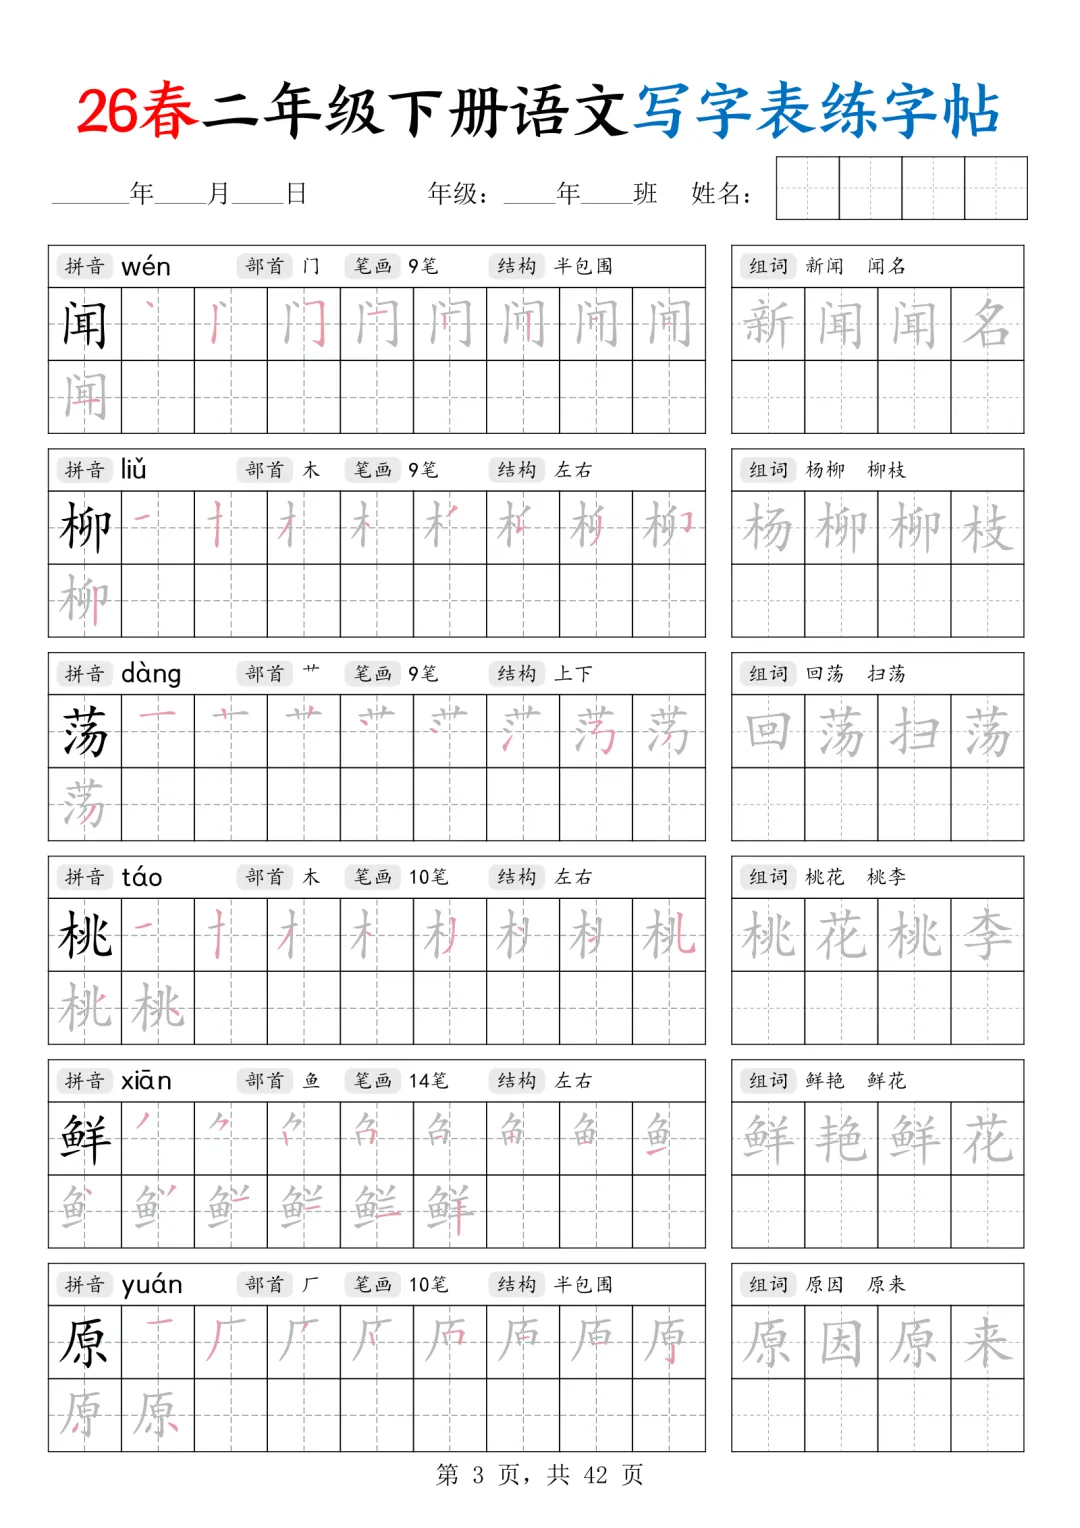 26春二年级下册语文写字表练字帖
______年____月____日 年级：____年____班 姓名：
拼音 wén 部首 门 笔画 9笔 结构 半包围
闻
闻
组词 新闻 闻名
新闻闻名
拼音 liǔ 部首 木 笔画 9笔 结构 左右
柳
柳
组词 杨柳 柳枝
杨柳柳枝
拼音 dàng 部首 艹 笔画 9笔 结构 上下
荡
荡
组词 回荡 扫荡
回荡扫荡
拼音 táo 部首 木 笔画 10笔 结构 左右
桃
桃 桃
组词 桃花 桃李
桃花桃李
拼音 xiān 部首 鱼 笔画 14笔 结构 左右
鲜
鲜
组词 鲜艳 鲜花
鲜艳鲜花
拼音 yuán 部首 厂 笔画 10笔 结构 半包围
原
原 原
组词 原因 原来
原因原来
第 3 页，共 42 页